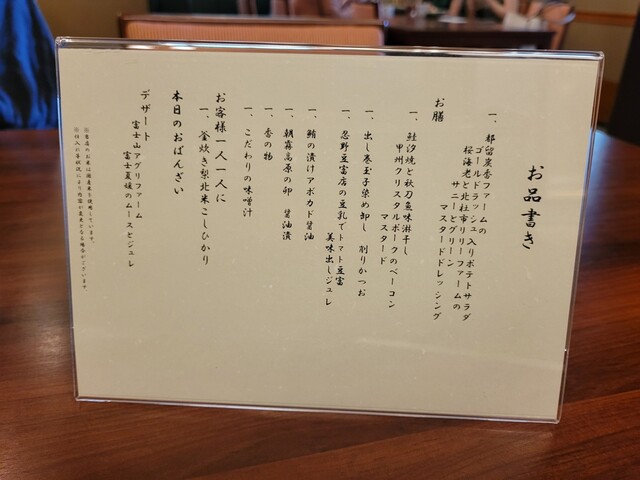 お品書き
一、都留炭香ファームの
ゴールドラッシュ入りポテトサラダ
桜海老と北杜市リリーファームの
サニーとグリーン
マスタードドレッシング
お膳
一、鮭汐焼と秋刀魚味淋干し
甲州クリスタルポークのベーコン
マスタード
一、出し巻玉子染め卸し 削りかつお
一、忍野豆富店の豆乳でトマト豆富
美味出しジュレ
一、鮪の漬けアボカド醤油
一、朝霧高原の卵 醤油漬
一、香の物
一、こだわりの味噌汁
お客様一人一人に
一、釜炊き梨北米こしひかり
本日のおばんざい
デザート
富士山アグリファーム
富士夏媛のムースとジュレ
※当店のお米は国産米を使用しています。
※仕入れ等状況により内容が変更となる場合がございます